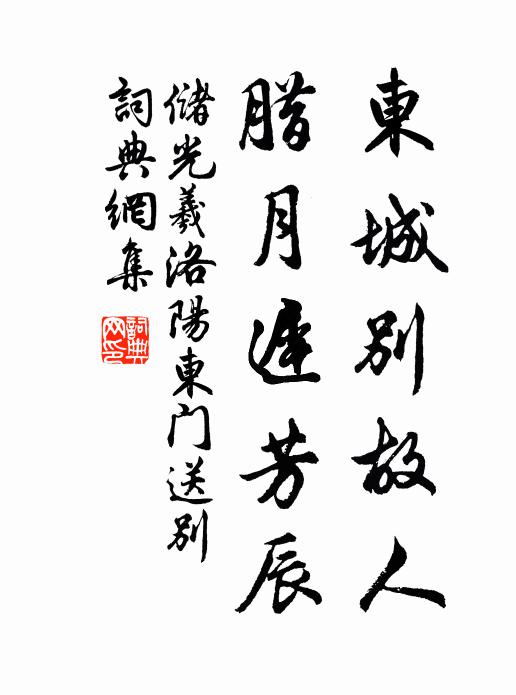 東城别故人
腊月遲芳辰
儲光羲洛陽東門送别
詞典網集
詞典
网印